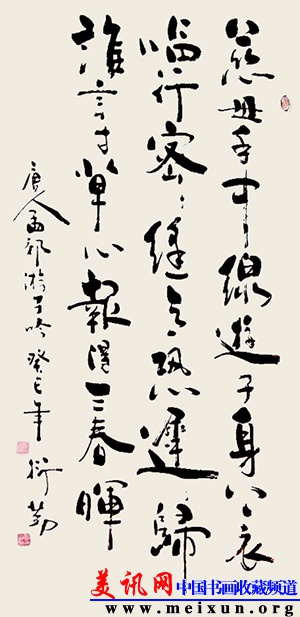 慈母手中線遊子身上衣
臨行密〻縫意恐遲〻歸
誰言寸草心報得三春暉
唐人孟郊游子吟癸巳年 衍勤
美讯网 中国书画收藏频道
www.meixun.org